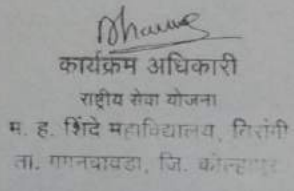 कार्यक्रम अधिकारी
राष्ट्रीय सेवा योजना
म. ह. शिंदे महाविद्यालय, तिसंगी
ता. गगनबावडा, जि. कोल्हापूर